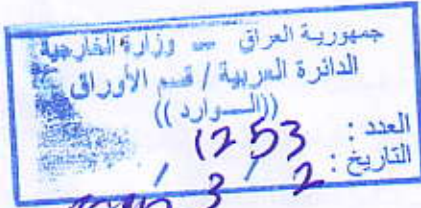 جمهورية العراق – وزارة الخارجية
الدائرة العربية / قسم الأوراق
((الـــوارد))
العدد : 1253
التاريخ : 2 / 3 /